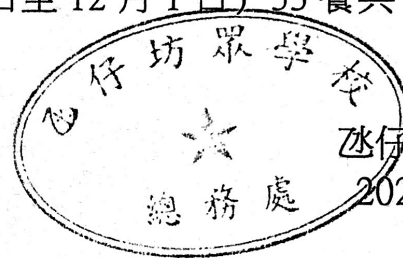 至 12 月 1 日) 55 餐共
氹仔坊眾學校
總務處
氹仔
202